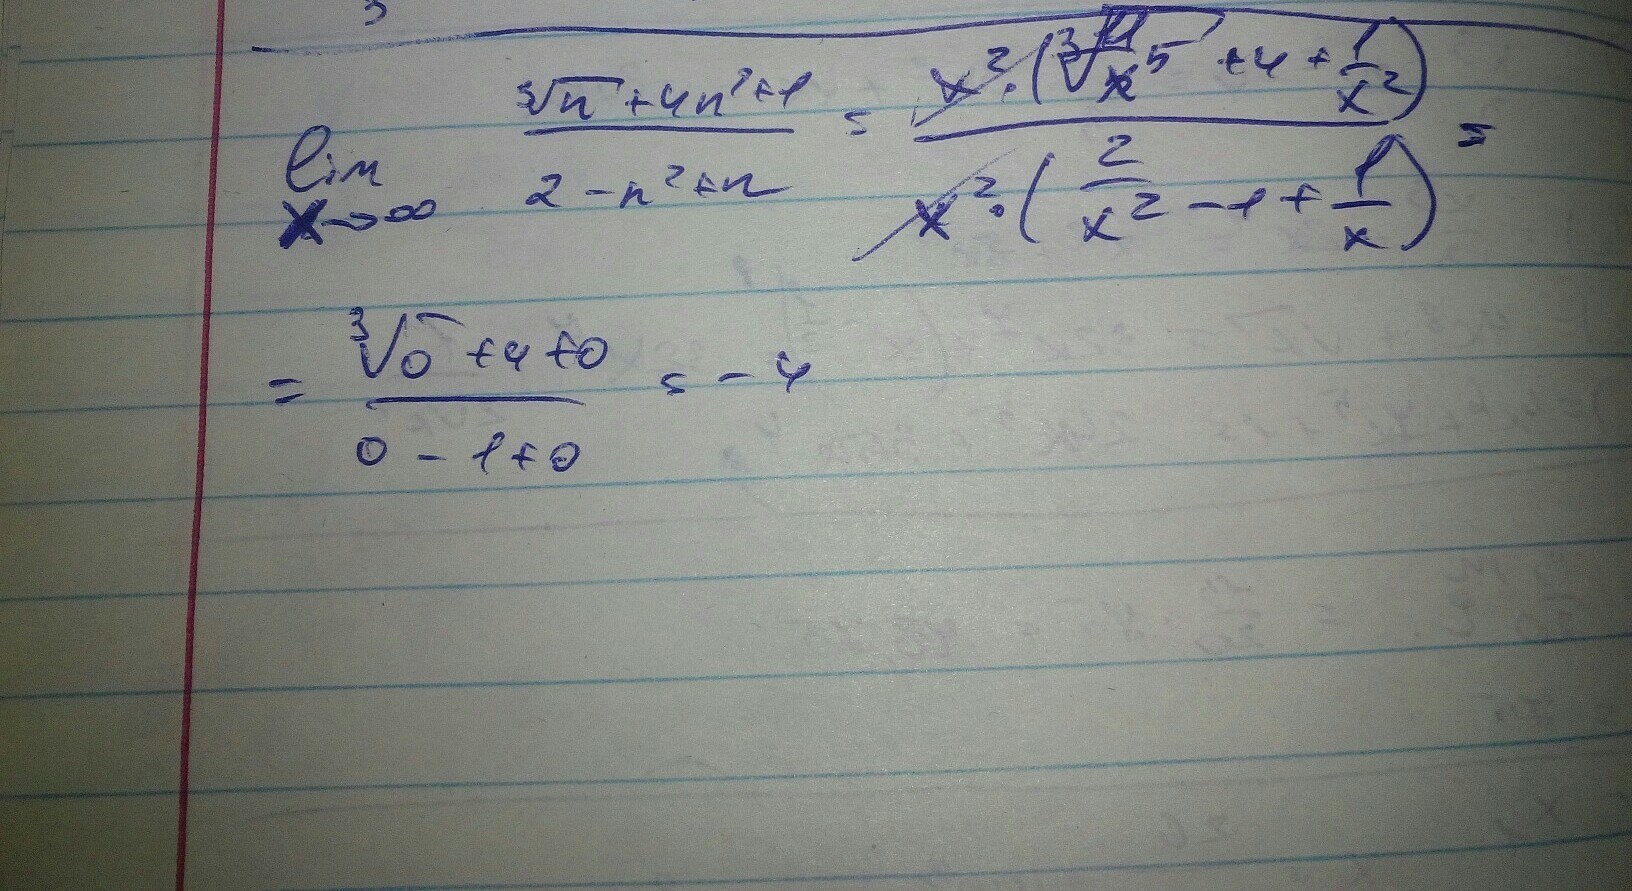 lim x→∞ (∛n + 4n² + 1) / (2 - n² + n) = x²·(∛(1/x⁵) + 4 + 1/x²) / x²·(2/x² - 1 + 1/x) =
= (∛0 + 4 + 0) / (0 - 1 + 0) = - 4